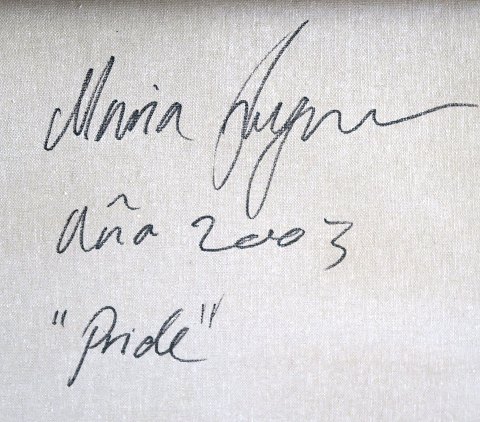 Maria
año 2003
"Pride"